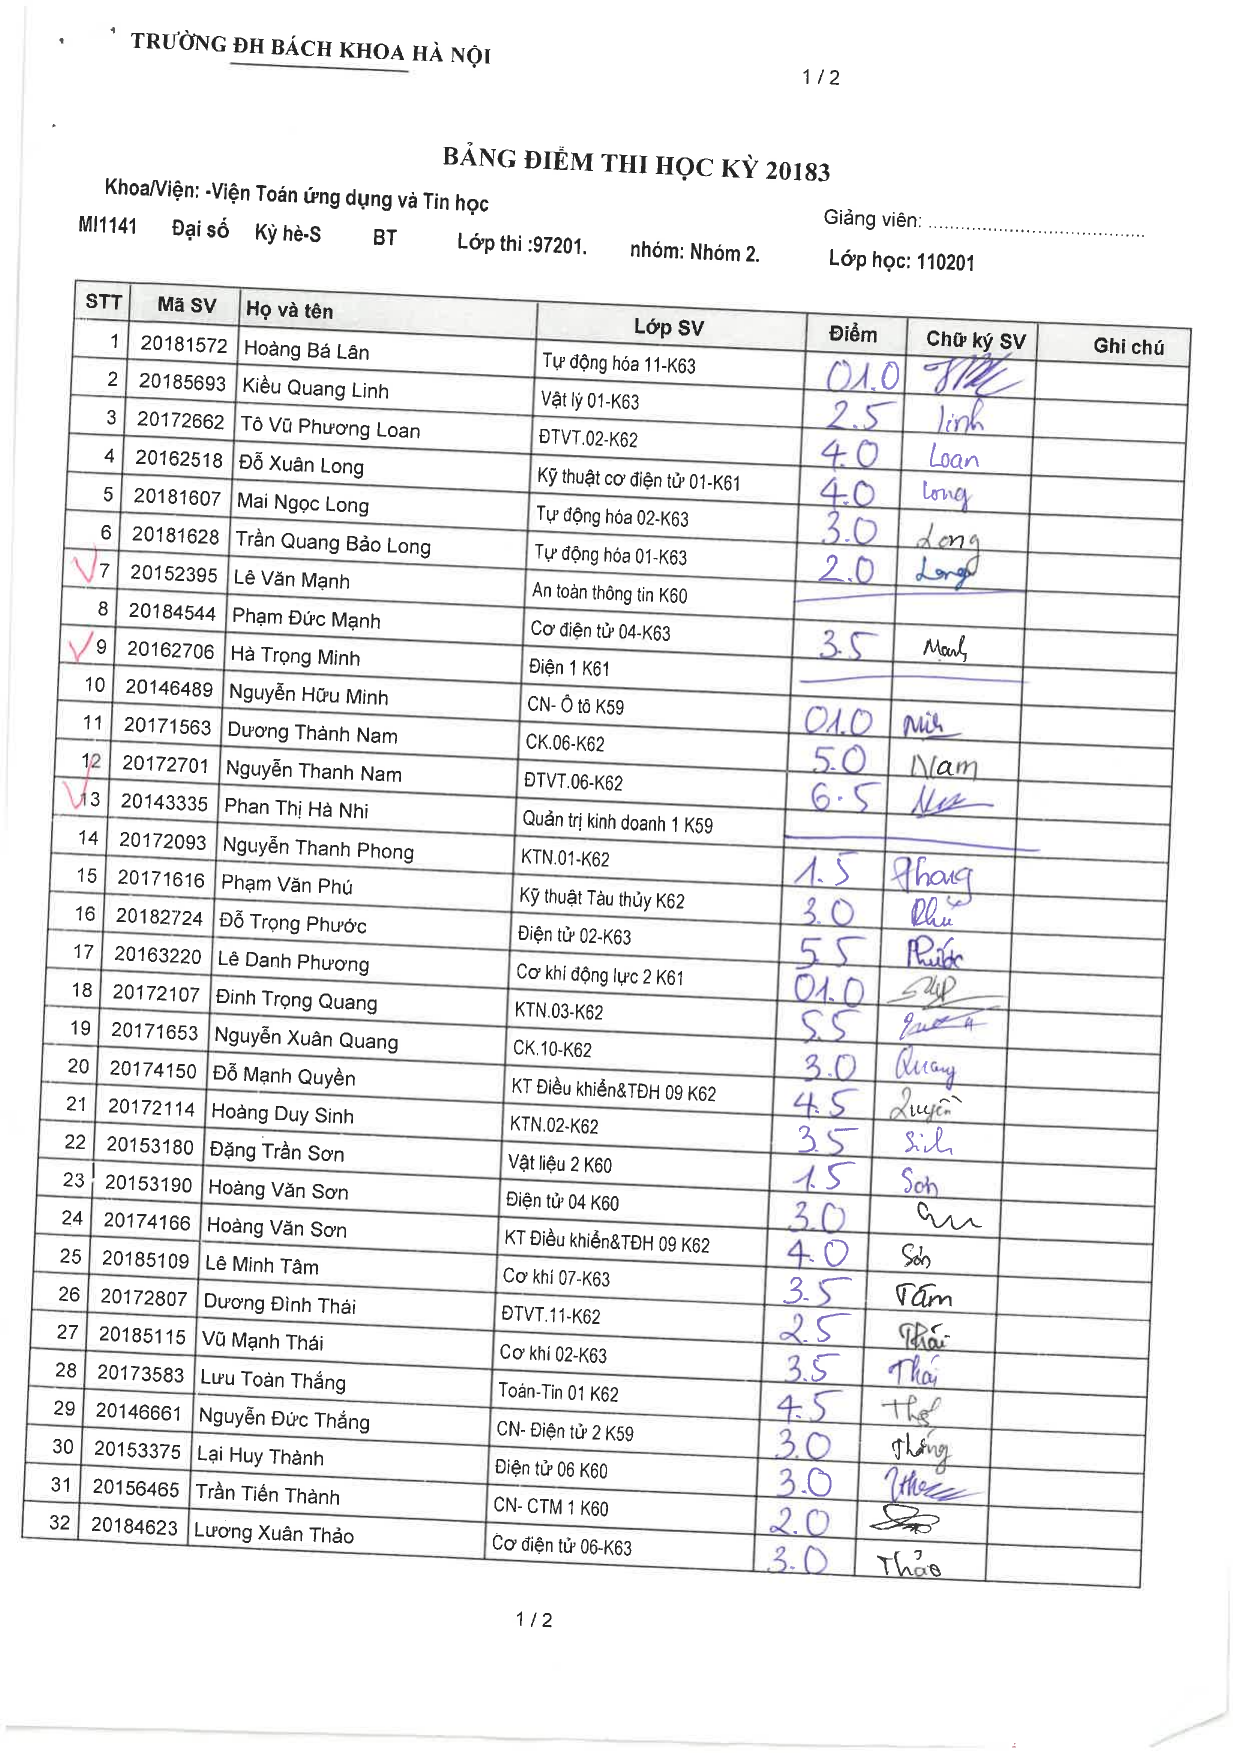 TRƯỜNG ĐH BÁCH KHOA HÀ NỘI
1 / 2
BẢNG ĐIỂM THI HỌC KỲ 20183
Khoa/Viện: -Viện Toán ứng dụng và Tin học
Giảng viên: ....................................
MI1141 Đại số Kỳ hè-S BT Lớp thi :97201. nhóm: Nhóm 2. Lớp học: 110201
STT Mã SV Họ và tên Lớp SV Điểm Chữ ký SV Ghi chú
1 20181572 Hoàng Bá Lân Tự động hóa 11-K63 01.0
2 20185693 Kiều Quang Linh Vật lý 01-K63 2.5 linh
3 20172662 Tô Vũ Phương Loan ĐTVT.02-K62 4.0 Loan
4 20162518 Đỗ Xuân Long Kỹ thuật cơ điện tử 01-K61 4.0 Long
5 20181607 Mai Ngọc Long Tự động hóa 02-K63 3.0 Long
6 20181628 Trần Quang Bảo Long Tự động hóa 01-K63 2.0 Long
7 20152395 Lê Văn Mạnh An toàn thông tin K60
8 20184544 Phạm Đức Mạnh Cơ điện tử 04-K63 3.5 Mạnh
9 20162706 Hà Trọng Minh Điện 1 K61
10 20146489 Nguyễn Hữu Minh CN- Ô tô K59 01.0
11 20171563 Dương Thành Nam CK.06-K62 5.0 Nam
12 20172701 Nguyễn Thanh Nam ĐTVT.06-K62 6.5
13 20143335 Phan Thị Hà Nhi Quản trị kinh doanh 1 K59
14 20172093 Nguyễn Thanh Phong KTN.01-K62 1.5 Phong
15 20171616 Phạm Văn Phú Kỹ thuật Tàu thủy K62 3.0 Phú
16 20182724 Đỗ Trọng Phước Điện tử 02-K63 5.5 Phước
17 20163220 Lê Danh Phương Cơ khí động lực 2 K61 01.0
18 20172107 Đinh Trọng Quang KTN.03-K62 5.5
19 20171653 Nguyễn Xuân Quang CK.10-K62 3.0 Quang
20 20174150 Đỗ Mạnh Quyền KT Điều khiển&TĐH 09 K62 4.5 Quyền
21 20172114 Hoàng Duy Sinh KTN.02-K62 3.5 Sinh
22 20153180 Đặng Trần Sơn Vật liệu 2 K60 1.5 Sơn
23 20153190 Hoàng Văn Sơn Điện tử 04 K60 3.0
24 20174166 Hoàng Văn Sơn KT Điều khiển&TĐH 09 K62 4.0 Sơn
25 20185109 Lê Minh Tâm Cơ khí 07-K63 3.5 Tâm
26 20172807 Dương Đình Thái ĐTVT.11-K62 2.5 Thái
27 20185115 Vũ Mạnh Thái Cơ khí 02-K63 3.5 Thái
28 20173583 Lưu Toàn Thắng Toán-Tin 01 K62 4.5
29 20146661 Nguyễn Đức Thắng CN- Điện tử 2 K59 3.0 Thắng
30 20153375 Lại Huy Thành Điện tử 06 K60 3.0
31 20156465 Trần Tiến Thành CN- CTM 1 K60 2.0
32 20184623 Lương Xuân Thảo Cơ điện tử 06-K63 3.0 Thảo
1 / 2